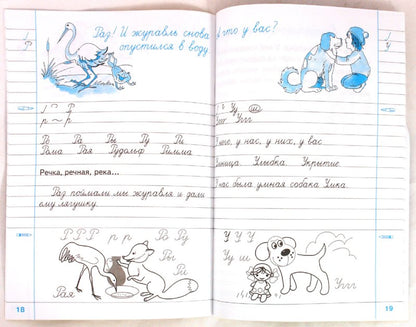 Раз! И журавль снова
опустился в воду
Р
р ~ р
Ро Ра Ры Ру Ри
Рома Рая Рудольф Римма
Речка, речная, река...
Раз поймали мы журавля и дали
ему лягушку.
Р Р Р р р Ро Ру
Ры
Ри
Рая
18
что у вас?
Уу ш
у нас, у них, у вас
Улыбка. Укрытие
У нас была умная собака Умка.
У У У
Уу ш
19